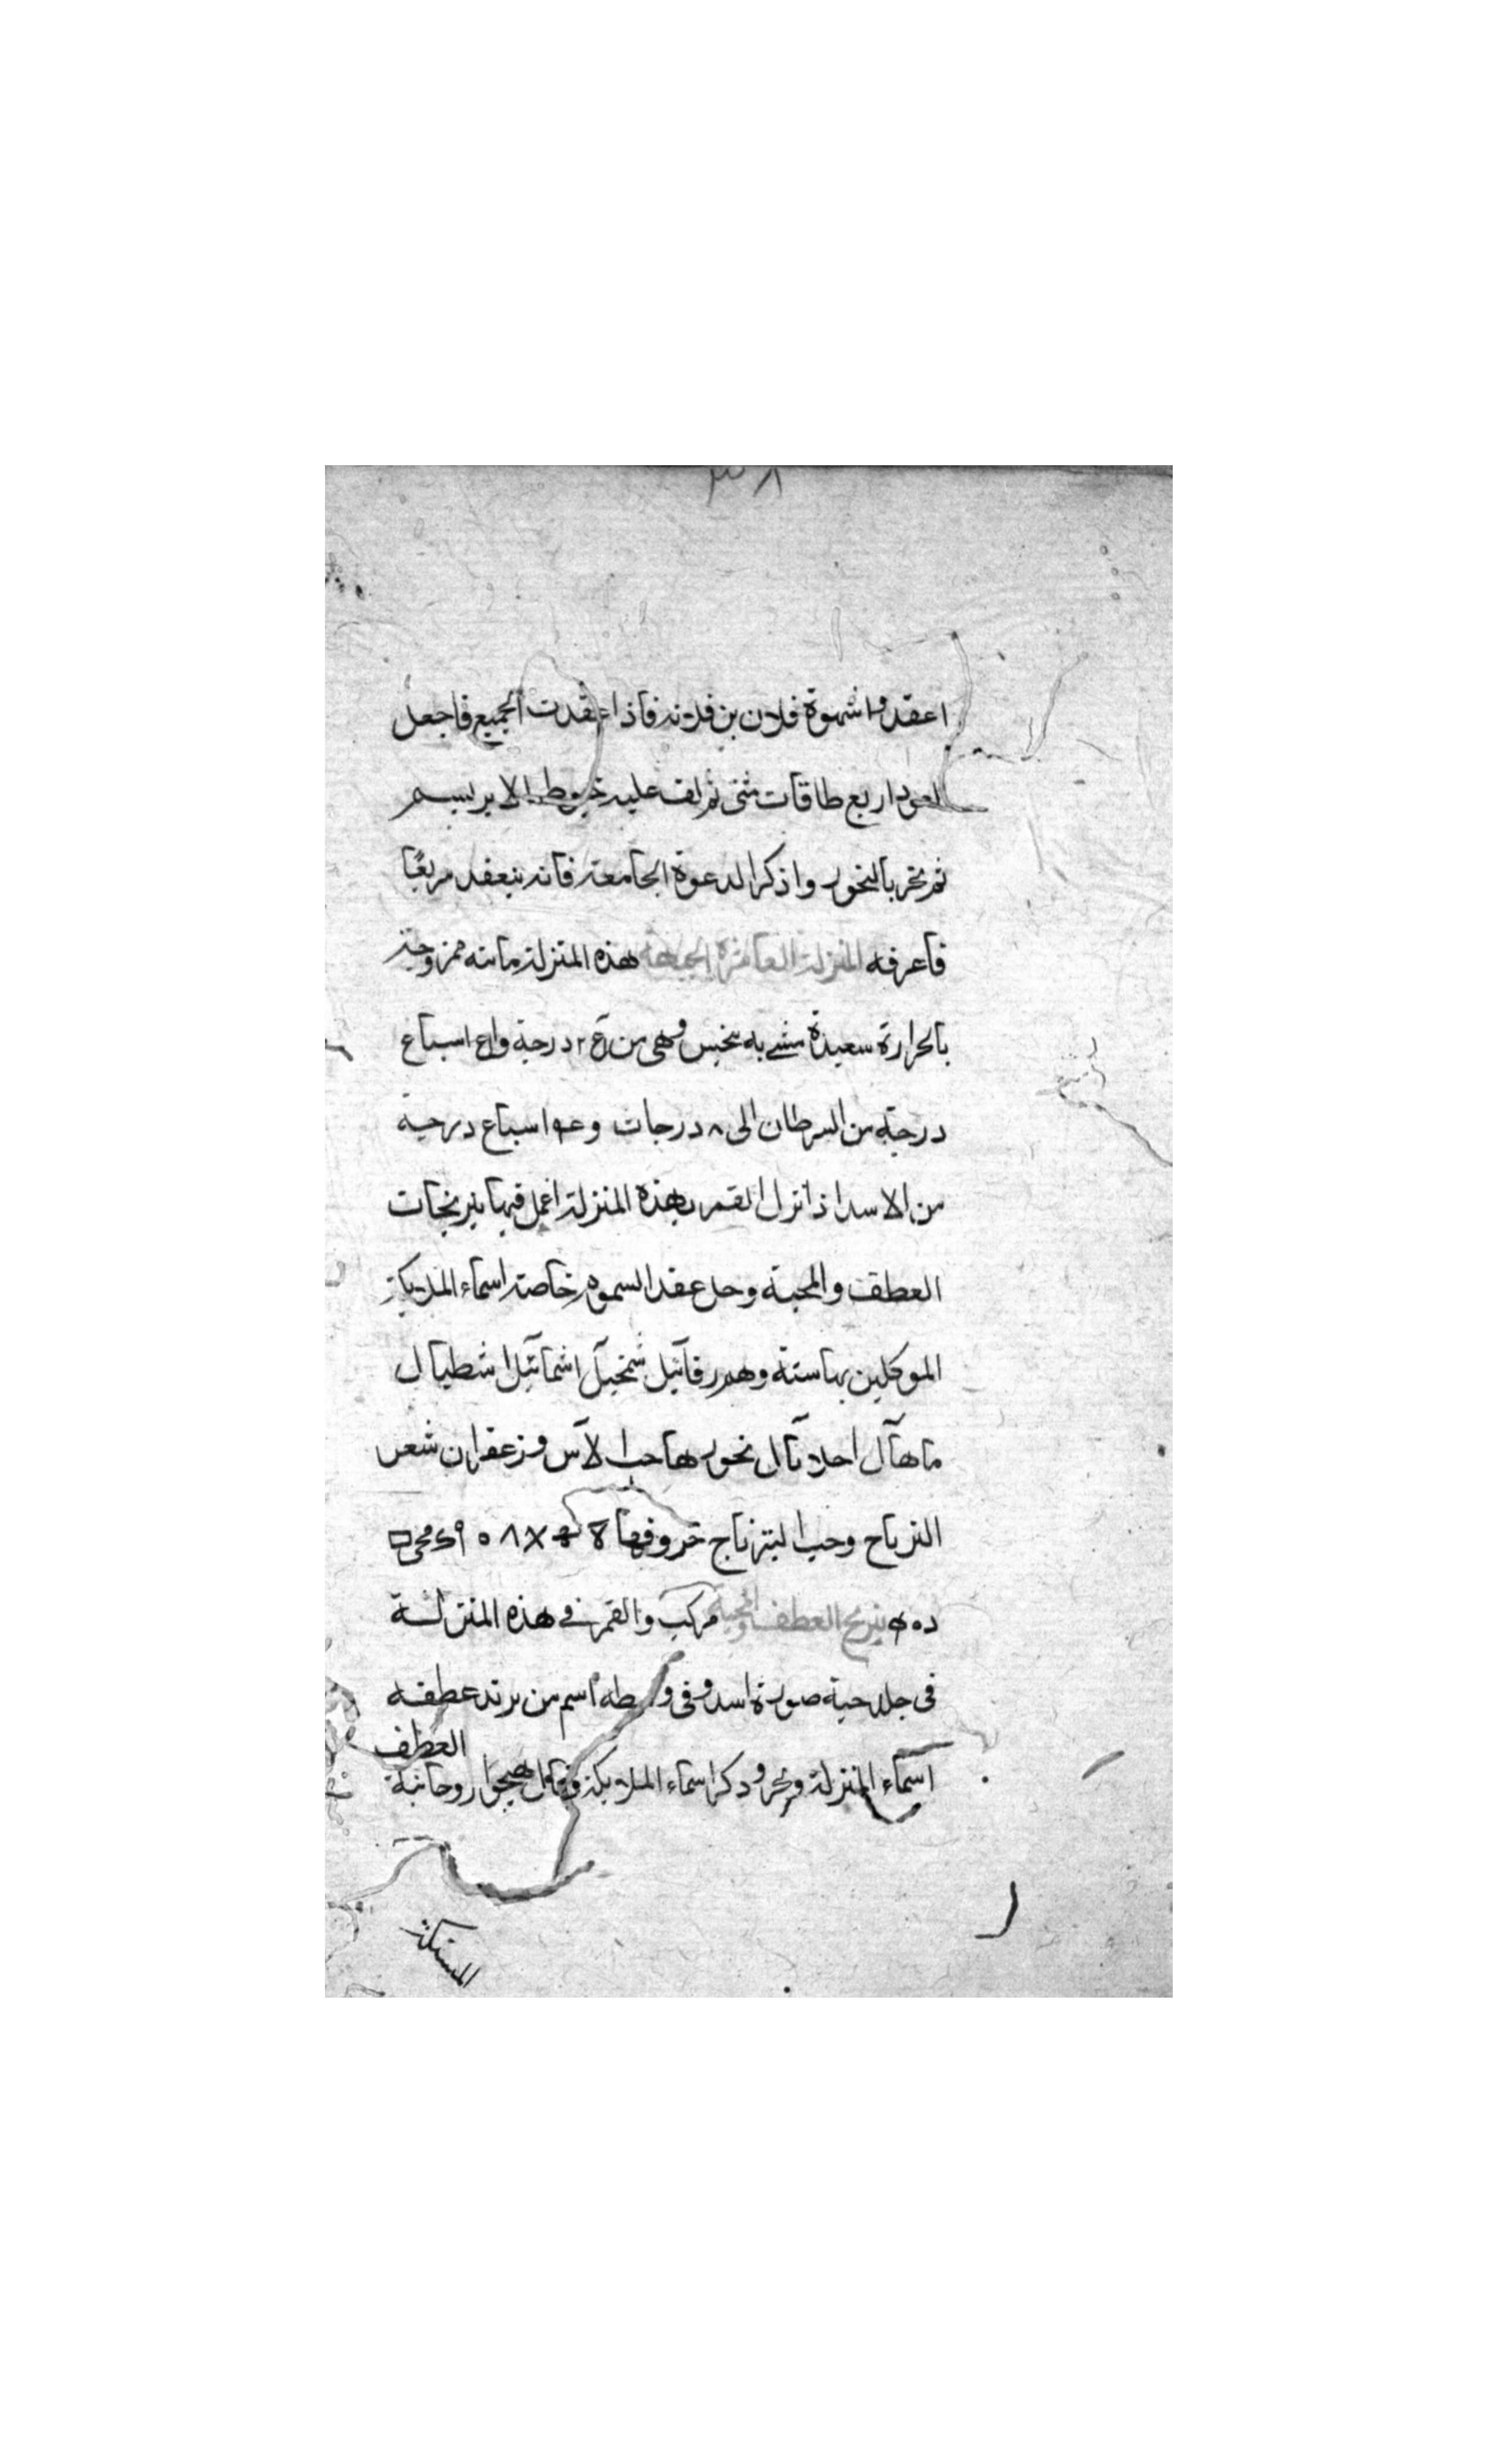 ٣٨
اعقدوا شهوة فلان بن فلانه فاذا عقدت الجميع فاجعل
العود اربع طاقات مثنى ثم لف عليه خيوط الابريسم
ثم بخر بالبخور واذكر الدعوة الجامعة فانه ينعقد مربعًا
فاعرفه المنزلة العاشرة الجبهة هذه المنزلة مائيه ممزوجة
بالحرارة سعيدة مشبه بنحس وهى من درجة اسباع
درجة من السرطان الى ٨ درجات اسباع درجة
من الاسد اذا نزل القمر بهذه المنزلة اعمل فيها نيرنجات
العطف والمحبة وحل عقد السموم خاصة اسماء الملايكة
الموكلين بها ستة وهم رفائيل اشمائيل اشطيال
ماهآل بخورها حب الآس وزعفران شعر
وحب حروفها
نيرنج العطف والمحبة مركب والقمر فى هذه المنزلة
فى جلد حية صورة اسد وفى وسطه اسم من يريد عطفه
العطف
اسماء المنزلة وبخر وذكر اسماء الملايكة وقال روحانية